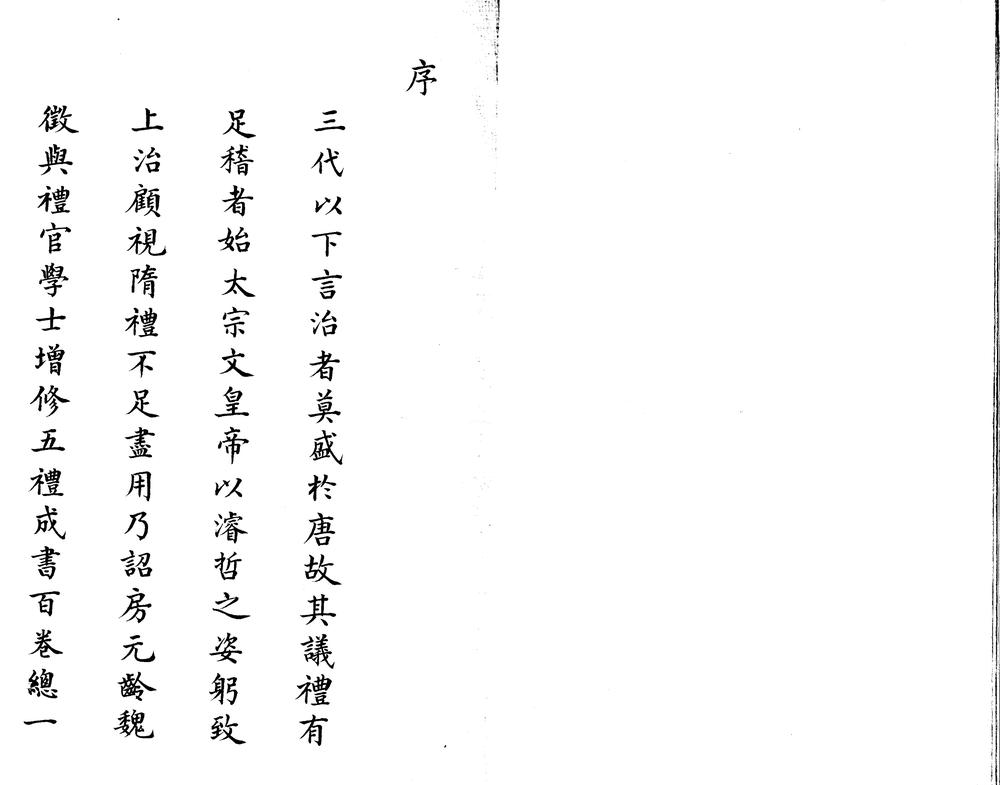 序
三代以下言治者莫盛於唐故其議禮有
足稽者始太宗文皇帝以濬哲之姿躬致
上治顧視隋禮不足盡用乃詔房元齡魏
徵與禮官學士增修五禮成書百卷總一